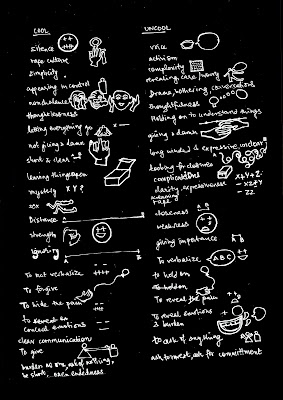 COOL
silence
rape culture
simplicity
appearing in control
nonchalance
thoughtlessness
letting everything go
not giving a damn
short & clear
leaving things open
mystery X Y ?
sex
Distance
strength
Ignoring
To not verbalize
To forgive
To hide the pain
to
conceal emotions
clear communication
To give
burden no one, ask of nothing,
be short, open endedness.
UNCOOL
voice
activism
complexity
revealing care / worry
Drama, bothering, conversations
thoughtfulness
Holding on to understand things
giving a damn
long winded & expressive, unclear
looking for closeness
complicatedness
clarity, expressiveness
X+Y+Z
closeness
weakness
giving importance A B
To verbalize A B C
to hold on
to hold on
To reveal the pain
To reveal emotions
& burden
to ask of anything
ask to meet, ask for commitment